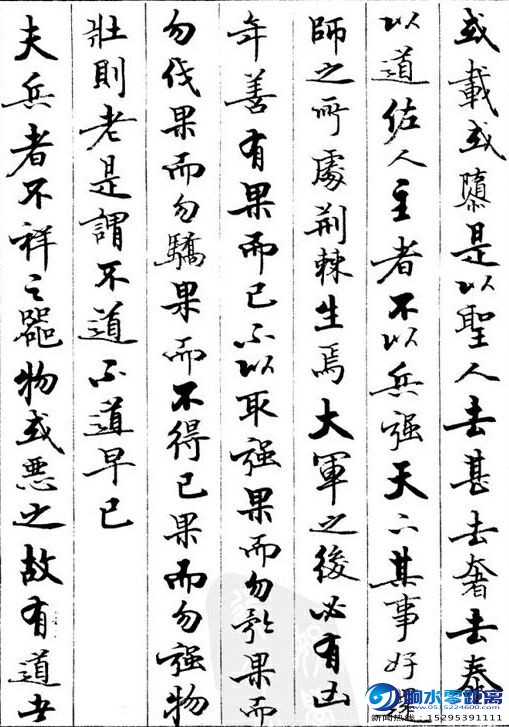 或載或隳是以聖人去甚去奢去泰
以道佐人主者不以兵强天下其事好
師之所處荆棘生焉大軍之後必有凶
年善有果而已不以取强果而勿矜果而
勿伐果而勿驕果而不得已果而勿强物
壯則老是謂不道不道早已
夫兵者不祥之器物或惡之故有道者
响水零距离
www.0515224600.com
新闻热线：15295391111